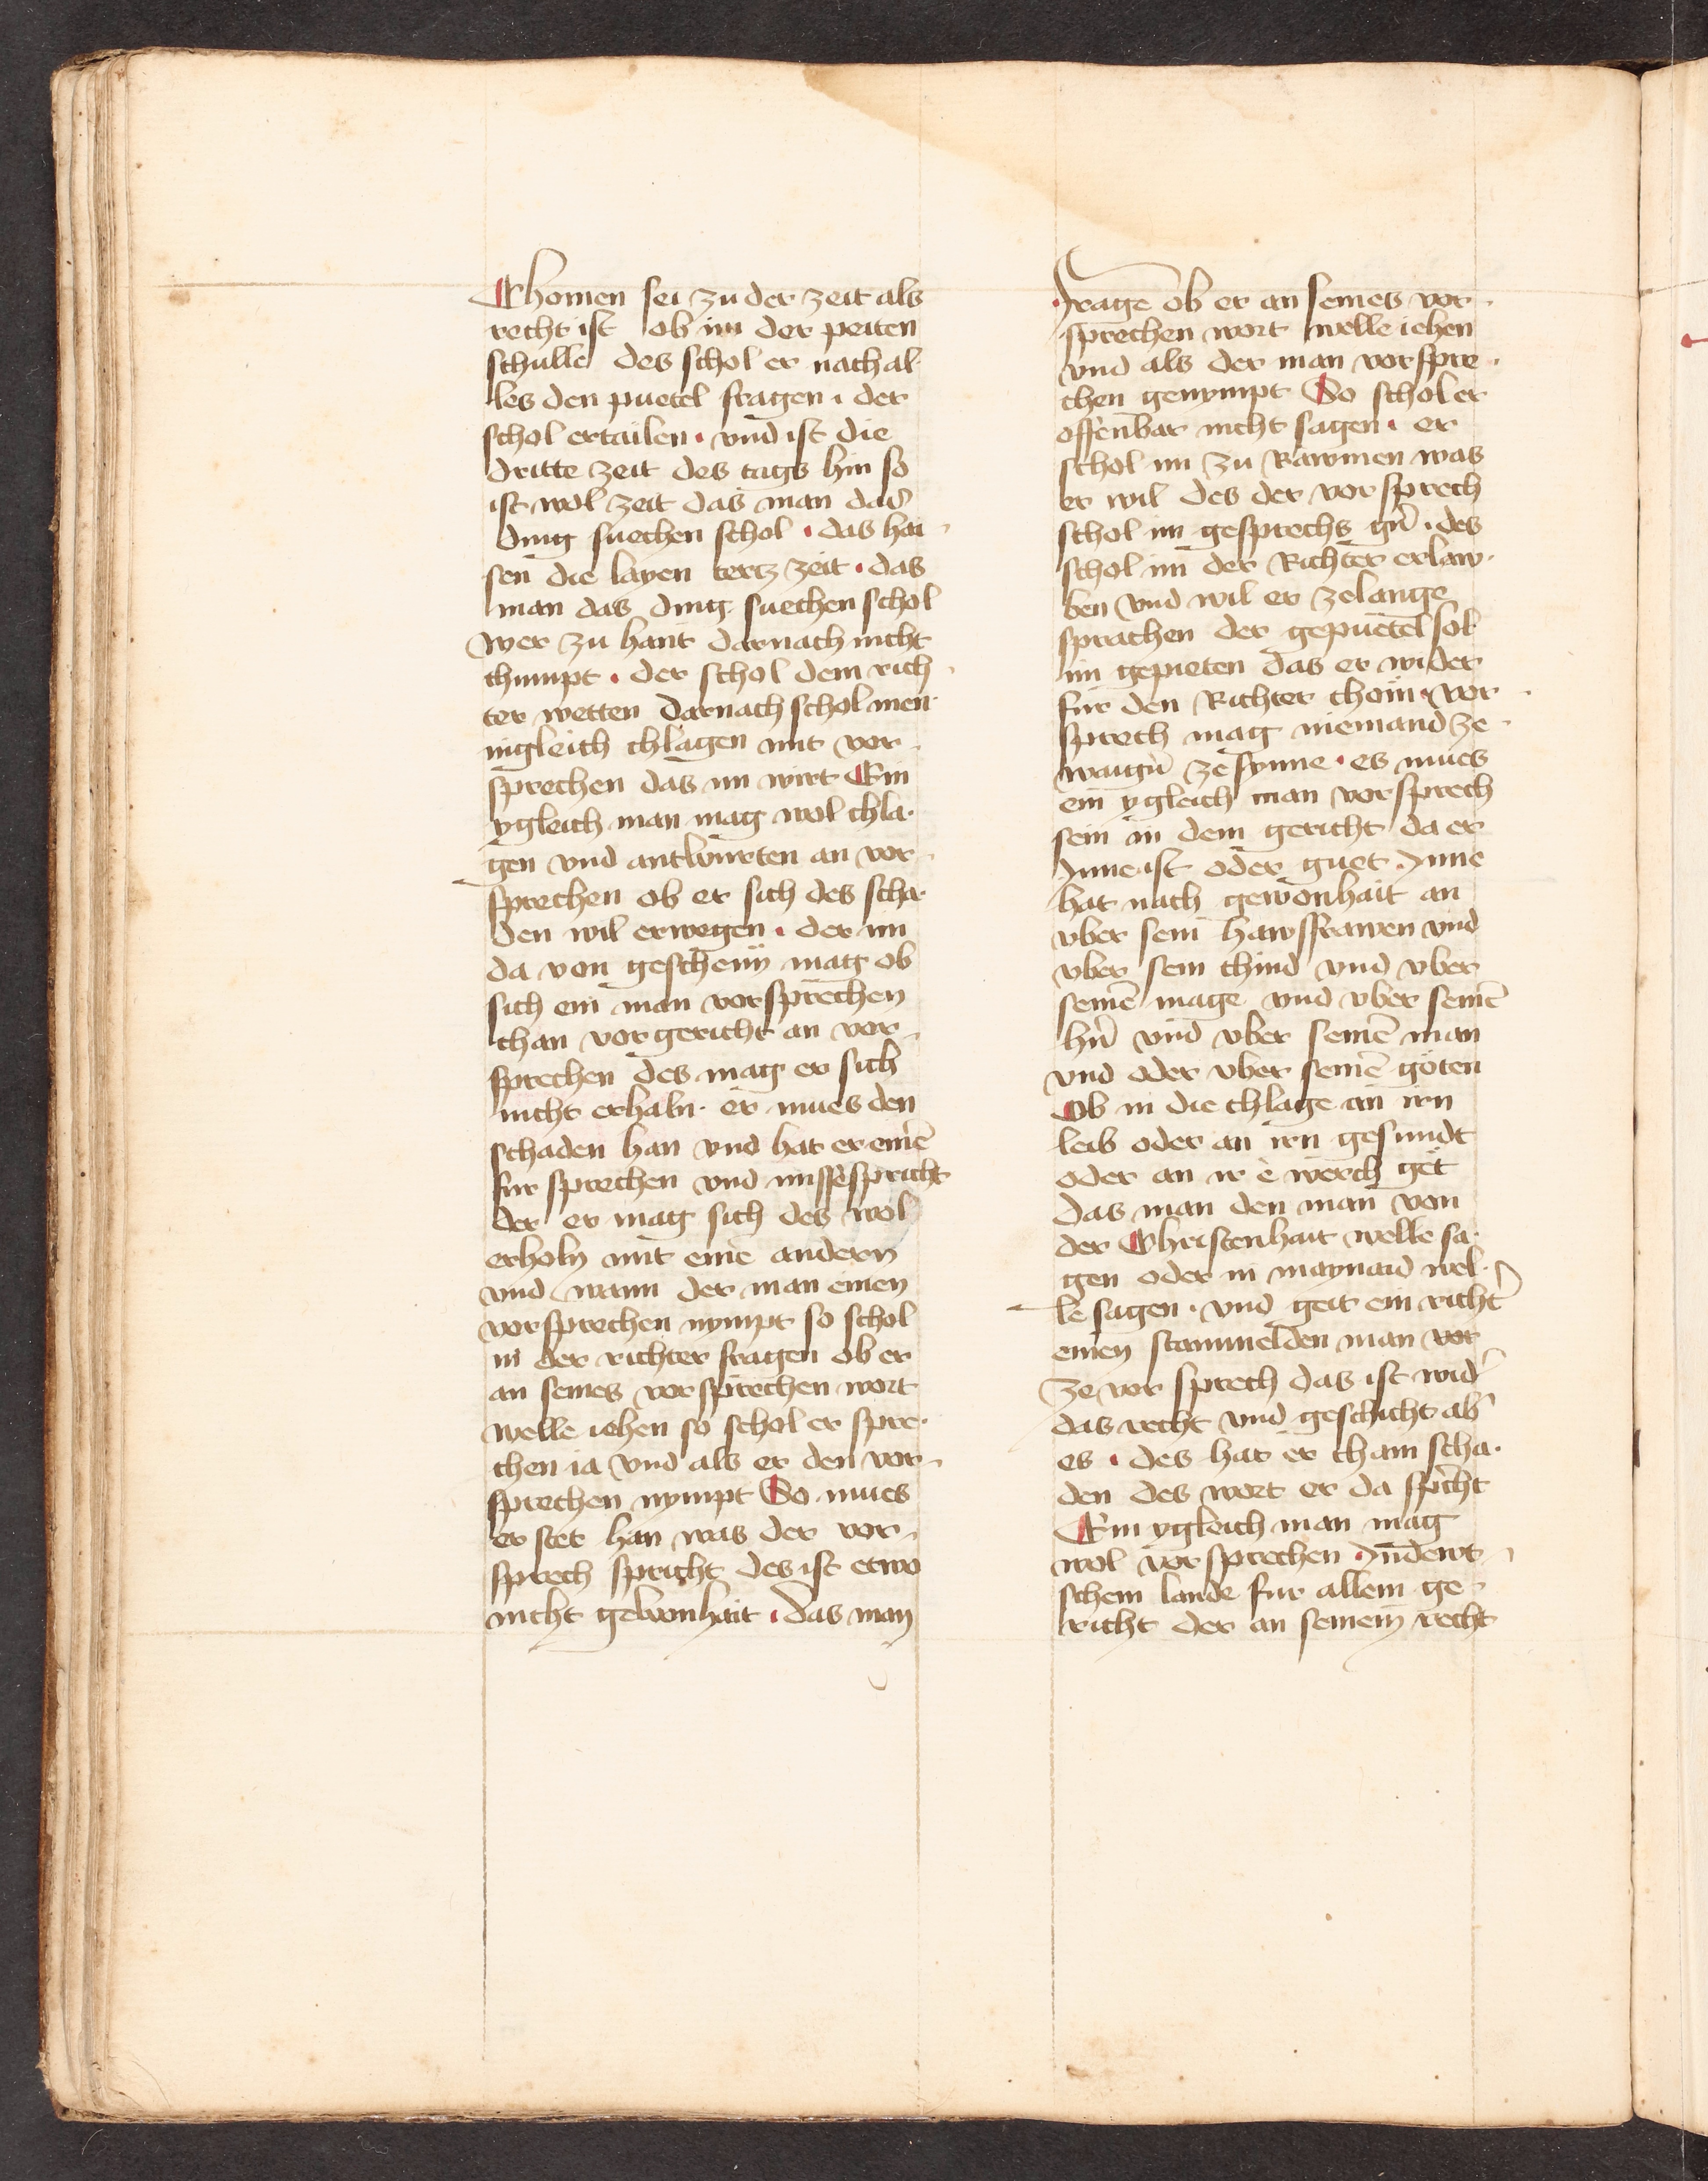 Chomen sei zu der zeit als
recht ist ob im der peiten
schulle des schol er nach al-
les den puetel fragen · der
schol ertailen · vnd ist die
dritte zeit des tags hin so
ist wol zeit das man das
ding suechen schol · das hai-
sen die layen tertz zeit · das
man das ding suechen schol
Wer zu hant darnach nicht
chumpt · der schol dem rich-
ter wetten Darnach schol men-
nigleich chlagen mit vor-
sprechen das im wirt Ein
ygleich man mag wol chla-
gen vnd antwurten an vor-
sprechen ob er sich des scha-
den wil erwegen · der im
da von geschehn mag ob
sich ein man vorsprechen
chan vor gericht an vor-
sprechen des mag er sich
nicht erhaln · er mues den
schaden han vnd hat er eine̅
fur sprechen vnd missespricht
der er mag sich des wol
erholn mit eine andern
vnd wann der man einen
vorsprechen nympt so schol
in der richter fragen ob er
an seines vorsprechen wort
welle iehen so schol er spre-
chen ia vnd als er den vor-
sprechen nympt So mues
er stet han was der vor-
sprech spricht des ist etwo
nicht gewonhait · das man
frage ob er an seines vor-
sprechen wort welle iehen
vnd als der man vorspre-
chen genympt So schol er
offenbar nicht sagen · er
schol im zu Rawmen was
er wil des der vorsprech
schol im gesprechs gn̄ · des
schol im der Richter erlaw-
ben vnd wil er zelange
sprachen der gepuetel sol
im gepieten das er wider
fur den Richter chom · vor-
sprech mag niemand ze-
waign̄ ze synne · es mues
ein ygleich man vorsprech
sein in dem gericht da er
Inne ist oder guet Inne
hat nach gewonhait an
vber sein hawsfrawen vnd
vber sein chind vnd vber
seine̅ mage vnd vber seine̅
hn̄ vnd vber seine̅ man
vnd oder vber seine̅ göten
Ob in die chlage an irn
leib oder an irn gesundt
oder an ir è werch get
Das man den man von
der Christenhait welle sa-
gen oder in maynaid wel-
le sagen · vnd geit ein richt̄
einen stammelden man vor
ze vor sprech das ist wid̄
das recht vnd geschicht ab̄
es · des hat er chain scha-
den des wort er da spricht
Ein ygleich man mag
wol vor sprechen · In dewt-
schem lande fur allem ge-
richt der an seinem recht